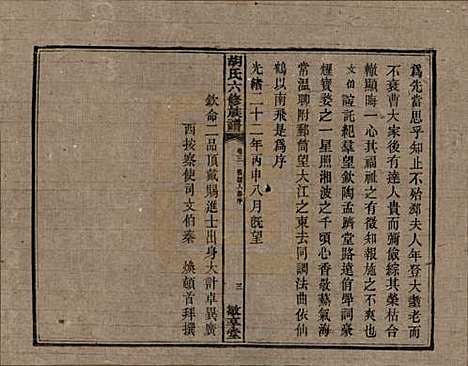 爲先當思乎知止不殆鄧夫人年登大耋老而
不衰曹大家後有達人貴而彌儉綜其榮枯合
轍顯晦一心其福祉之有徵知報施之不爽
文伯誼託紀羣望欽陶孟躋堂路遠侑斝詞豪
煙寶婺之一星照湘波之千頃無徵載筆敢擬
常溫聊附郵筒望大江之東去同調法曲依仙
鶴以南飛是爲序
光緒二十二年丙申八月既望
欽命二品頂戴賜進士出身大計卓異廣
西按察使司文伯秦 煥頓首拜撰
胡氏六修族譜
卷三
三
敏學堂